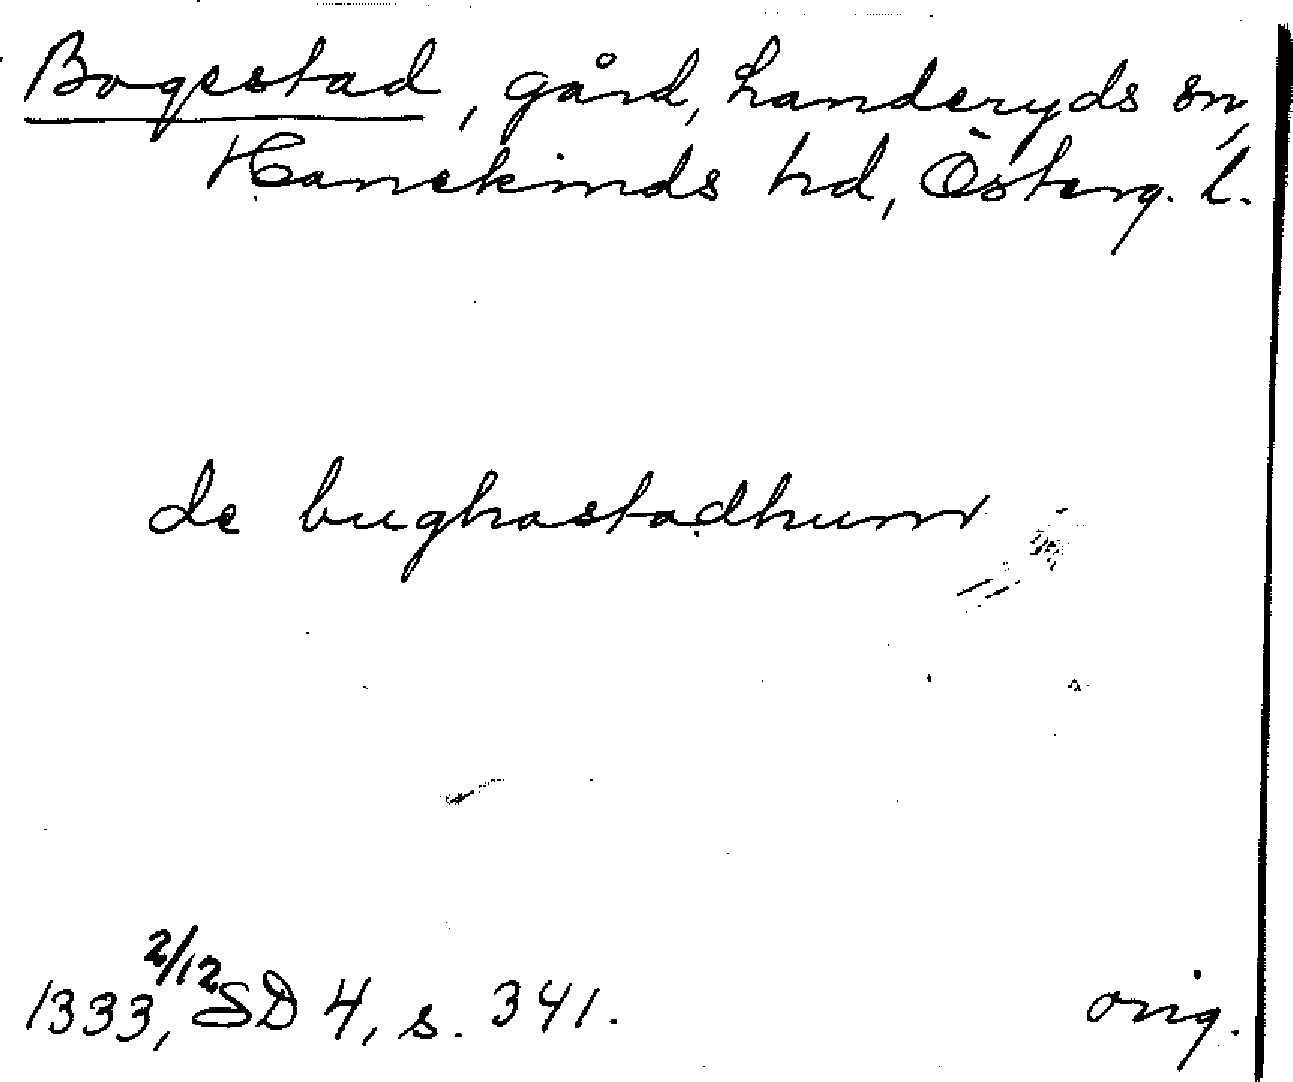 Bogestad, gård, Landeryds sn,
Hanekinds hd, Österg. l.
de bughastadhum
1333, 2/12 SD 4, s. 341. orig.